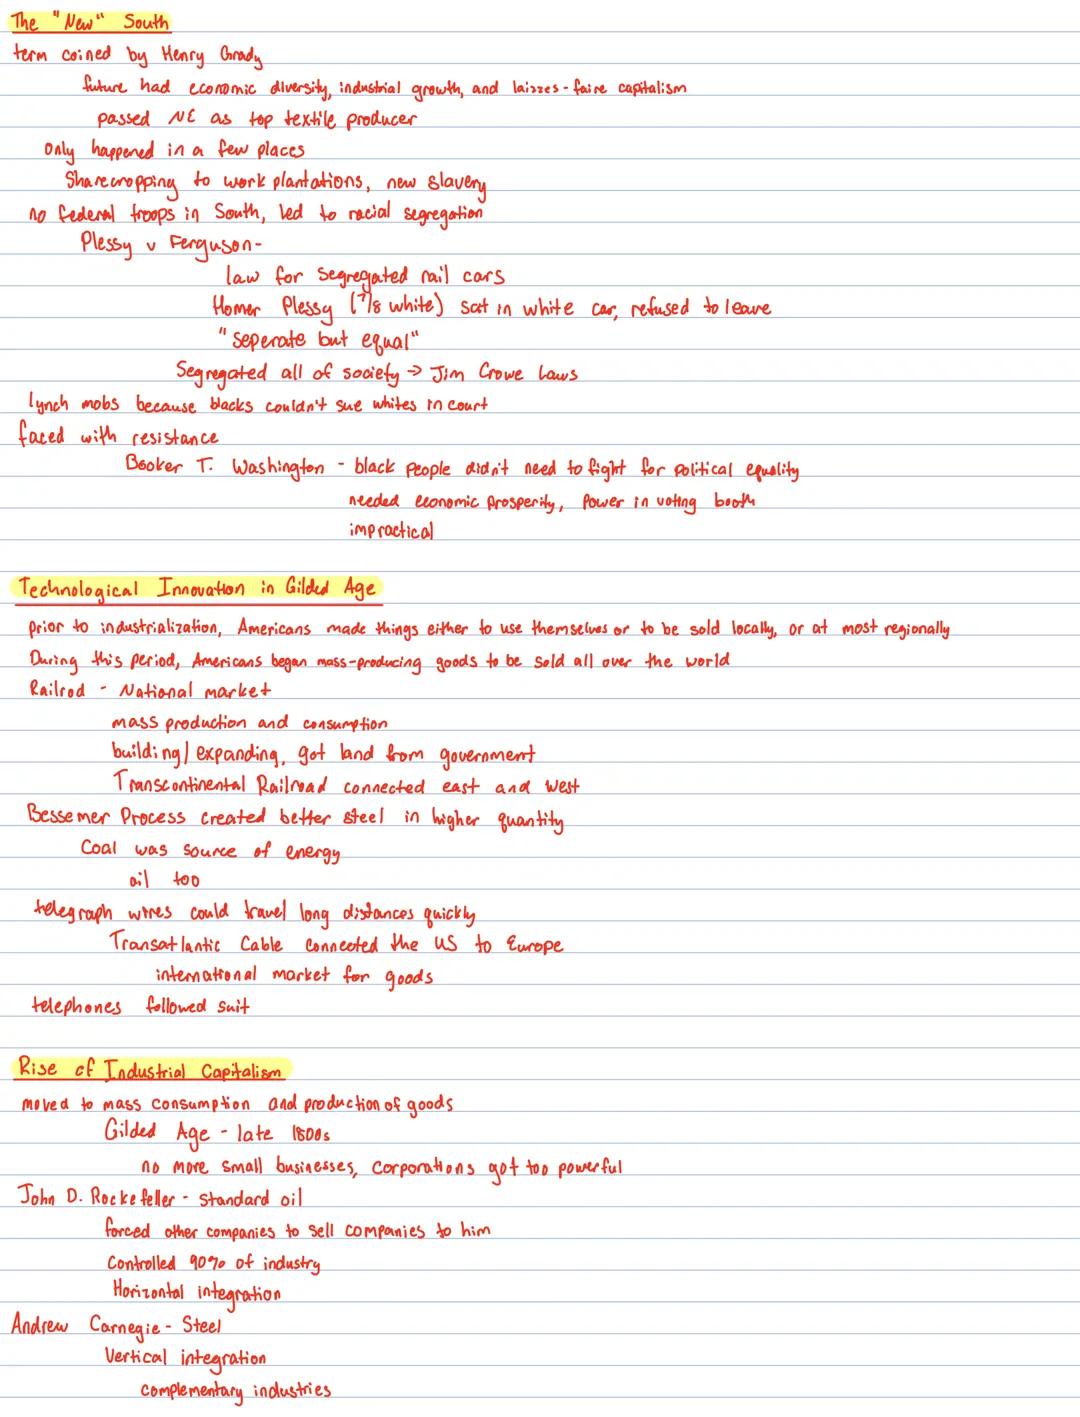 The "New" South
term coined by Henry Grady
future had economic diversity, industrial growth, and laizzes-faire capitalism
passed NE as top textile producer
only happened in a few places
Sharecropping to work plantations, new slavery
no federal troops in South, led to racial segregation
Plessy v Ferguson-
law for segregated rail cars
Homer Plessy (7/8 white) sat in white car, refused to leave
"seperate but equal"
Segregated all of society → Jim Crowe Laws
lynch mobs because blacks couldn't sue whites in court
faced with resistance
Booker T. Washington - black people didn't need to fight for political equality
needed economic prosperity, Power in voting booth
impractical
Technological Innovation in Gilded Age
prior to industrialization, Americans made things either to use themselves or to be sold locally, or at most regionally
During this period, Americans began mass-producing goods to be sold all over the world
Railrod - National market
mass production and consumption
building/expanding, got land from government
Transcontinental Railroad connected east and west
Bessemer Process created better steel in higher quantity
Coal was source of energy
oil too
telegraph wires could travel long distances quickly
Transatlantic Cable connected the US to Europe
international market for goods
telephones followed suit
Rise of Industrial Capitalism
moved to mass consumption and production of goods
Gilded Age - late 1800s
no more small businesses, corporations got too powerful
John D. Rockefeller - standard oil
forced other companies to sell companies to him
Controlled 90% of industry
Horizontal integration
Andrew Carnegie - Steel
Vertical integration
complementary industries